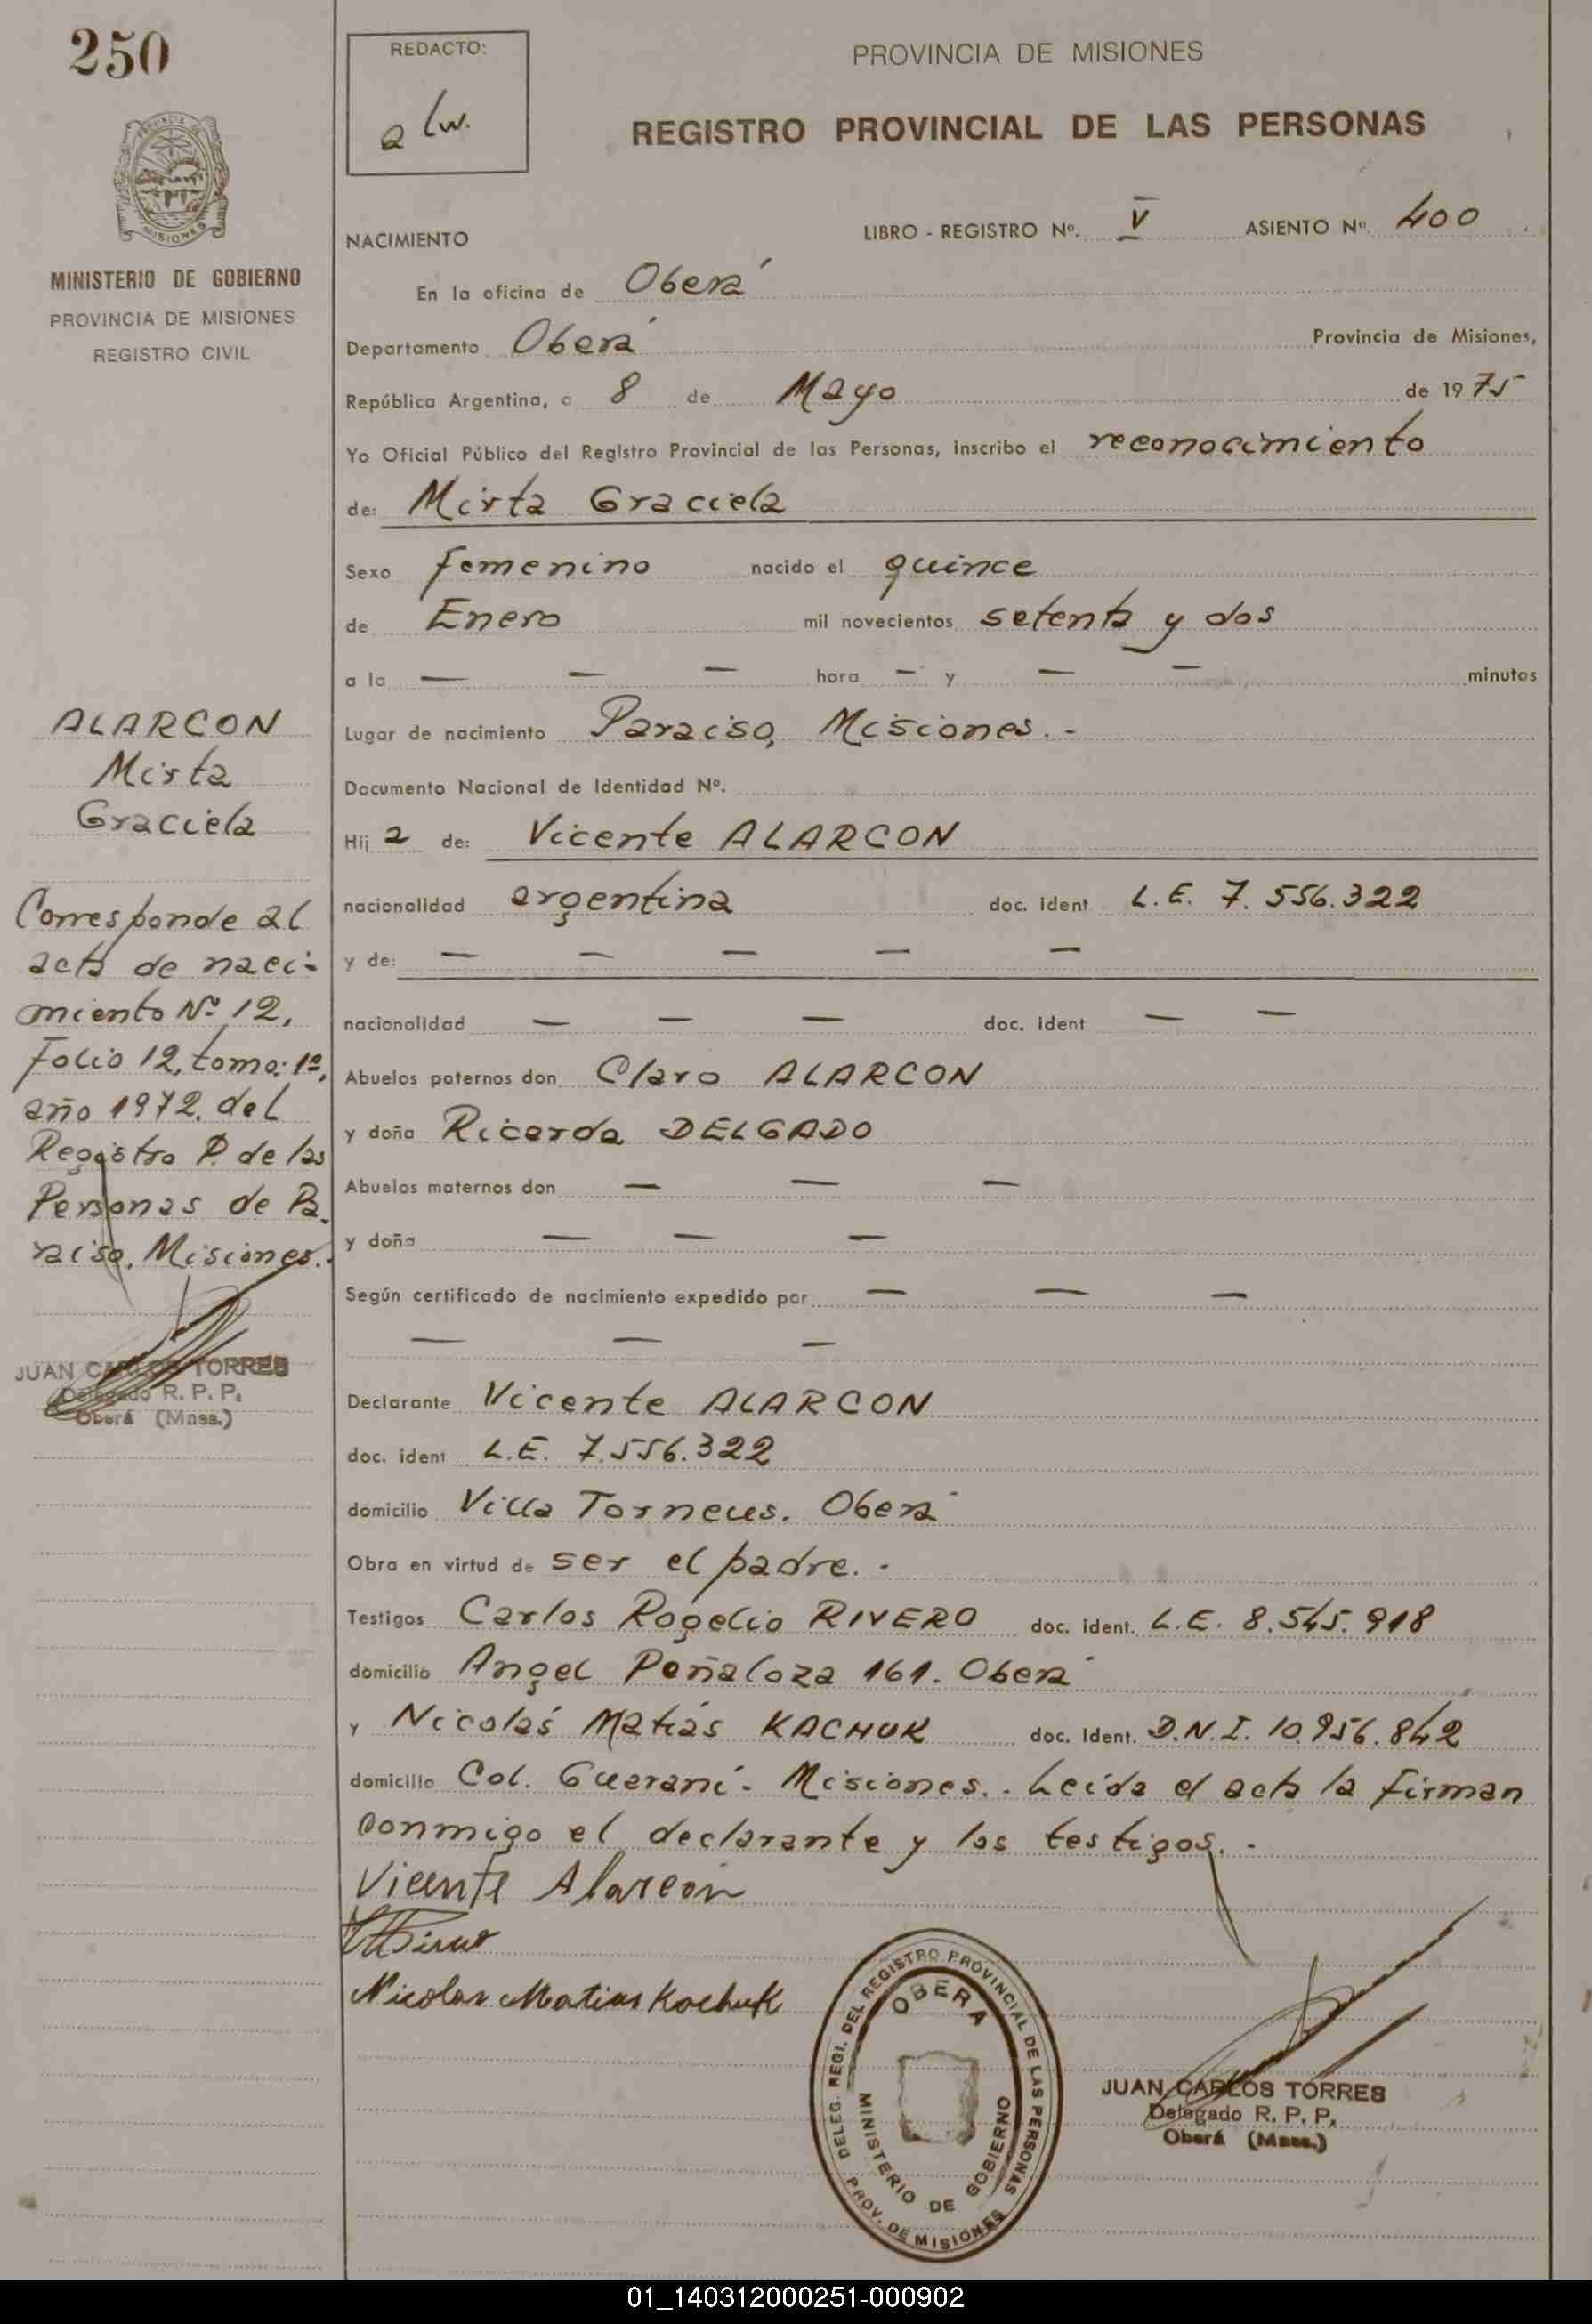 250
REDACTO:
alw.
PROVINCIA DE MISIONES
REGISTRO PROVINCIAL DE LAS PERSONAS
PROVINCIA
MISIONES
MINISTERIO DE GOBIERNO
PROVINCIA DE MISIONES
REGISTRO CIVIL
NACIMIENTO LIBRO - REGISTRO Nº. V ASIENTO Nº. 400
En la oficina de Oberá
Departamento Oberá Provincia de Misiones,
República Argentina, a 8 de Mayo de 1975
Yo Oficial Público del Registro Provincial de las Personas, inscribo el reconocimiento
de: Mirta Graciela
Sexo femenino nacido el quince
de Enero mil novecientos setenta y dos
a la — — — hora — y — — minutos
Lugar de nacimiento Paraiso, Misiones. -
Documento Nacional de Identidad Nº.
Hij a de: Vicente ALARCON
nacionalidad argentina doc. ident L.E. 7.556.322
y de: — — — — —
nacionalidad — — — doc. ident — —
Abuelos paternos don Claro ALARCON
y doña Ricarda DELGADO
Abuelos maternos don — — —
y doña — — —
Según certificado de nacimiento expedido por — — —
— — —
Declarante Vicente ALARCON
doc. ident L.E. 7.556.322
domicilio Villa Torneus. Oberá
Obra en virtud de ser el padre. -
Testigos Carlos Rogelio RIVERO doc. ident. L.E. 8.545.918
domicilio Angel Peñaloza 161. Oberá
y Nicolás Matías KACHUK doc. ident. D.N.I. 10.956.842
domicilio Col. Guaraní - Misiones. - Leída el acta la firman
conmigo el declarante y los testigos. -
Vicente Alarcón
Nicolas Matias Kachuk
ALARCON
Mirta
Graciela
Corresponde al
acta de naci-
miento Nº 12,
Folio 12, tomo: 1º,
año 1972. del
Registro P. de las
Personas de Pa.
raiso. Misiones.
JUAN CARLOS TORRES
Delegado R. P. P.
Oberá (Mnes.)
DELEG. REGI. DEL REGISTRO PROVINCIAL DE LAS PERSONAS
OBERA
MINISTERIO DE GOBIERNO
PROV. DE MISIONES
JUAN CARLOS TORRES
Delegado R. P. P.
Oberá (Mnes.)
01_140312000251-000902